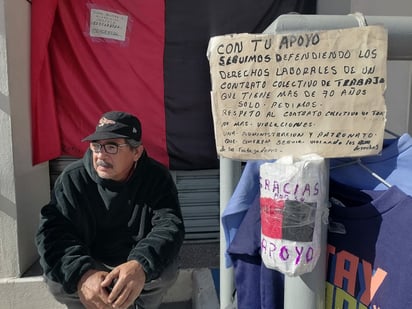 CON TU APOYO
SEGUIMOS DEFENDIENDO LOS
DERECHOS LABORALES DE UN
CONTRATO COLECTIVO DE TRABAJO
QUE TIENE MÁS DE 70 AÑOS
SOLO PEDIMOS.
RESPETO AL CONTRATO COLECTIVO DE TRAB
NO MAS VIOLACIONES.
UNA ADMINISTRACION Y PATRONATO
QUE
GRACIAS
POR SU
APOYO
STAY